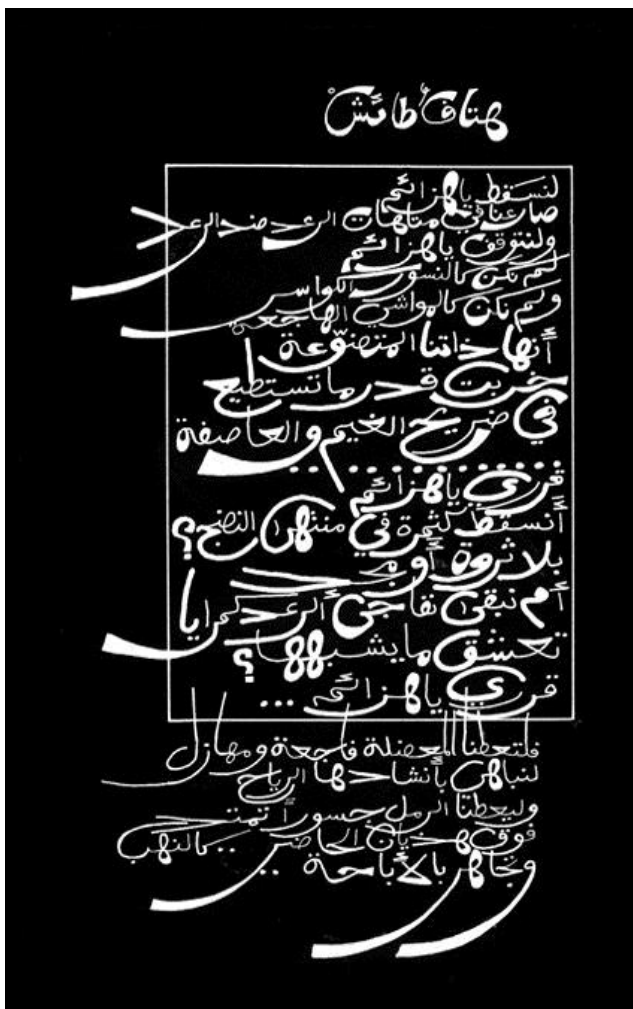 هتافٌ طائش
لنسقط يا هزائم
متاهات الرعد ضد الرعد
ولنتوقف يا هزائم
لم نكن كالنسور الكواسر
ولم نكن كالمواشي الهاجعة
أنها ذاتنا المتضوّعة
قدر ما تستطيع
في ضريح الغيم والعاصفة
..............
قرري يا هزائم
أنسقط كثمرة في منتهى النضج؟
بلا ثروة أو مجد
أم نبقى نفاجئ الرعد كمرايا
تعشق ما يشبهها؟
قرري يا هزائم ...
فلتعطنا المعضلة فاجعة ومهازل
لنباهي بأنشادها الرياح
وليعطنا الرمل جسوراً تمتد
فوق هذيان الحاضر .. كالنهب
بالأباحة ..